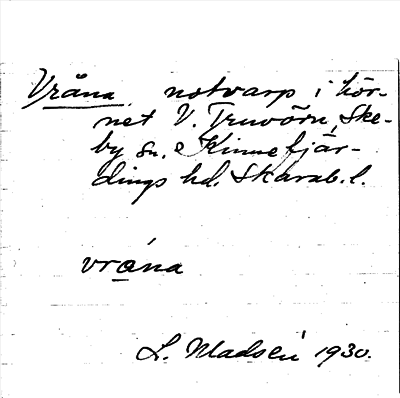 Vråna, notvarp i hör-
net V. Truvörn, Ske-
by sn. Kinnefjär-
dings hd. Skarab. l.
vrǻna
L. Madsén 1930.